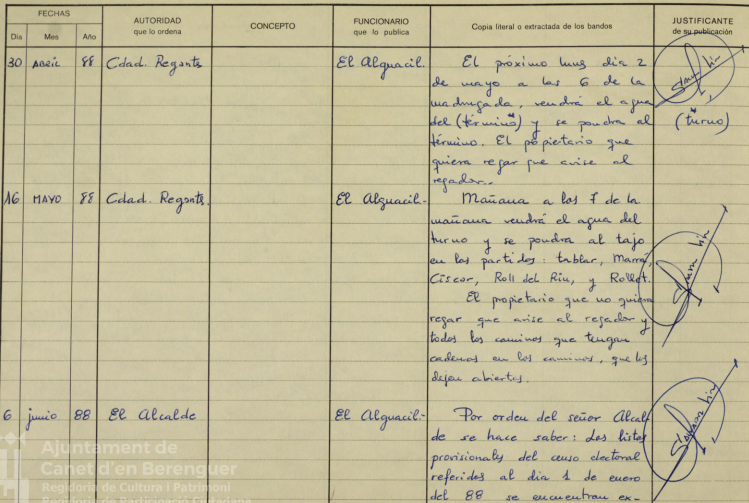 FECHAS
Día Mes Año
AUTORIDAD
que lo ordena
CONCEPTO
FUNCIONARIO
que lo publica
Copia literal o extractada de los bandos
JUSTIFICANTE
de su publicación
30 ABRIL 88 Cdad. Regants El Alguacil. El próximo lung dia 2
de mayo a las 6 de la
madrugada, vendrá el agua
del (término) y se pondra al (turno)
término. El popietario que
quiera regar que avise al
regador.
16 MAYO 88 Cdad. Regants. El Alguacil.- Mañana a las 7 de la
mañana vendrá el agua del
turno y se pondra al tajo
en las partidas: tablar, Marrá,
Ciscar, Roll del Riu, y Rollet.
El propietario que no quiera
regar que avise al regador y
todos los caminos que tengan
cadenas en los caminos, que los
dejen abiertos.
6 junio 88 El Alcalde El Alguacil.- Por orden del señor Alcal
de se hace saber: Las listas
provisionales del censo electoral
referidos al dia 1 de enero
del 88 se encuentran ex-
Ajuntament de
Canet d'en Berenguer
Regidoria de Cultura i Patrimoni
Regidoria de Participació Ciutadana